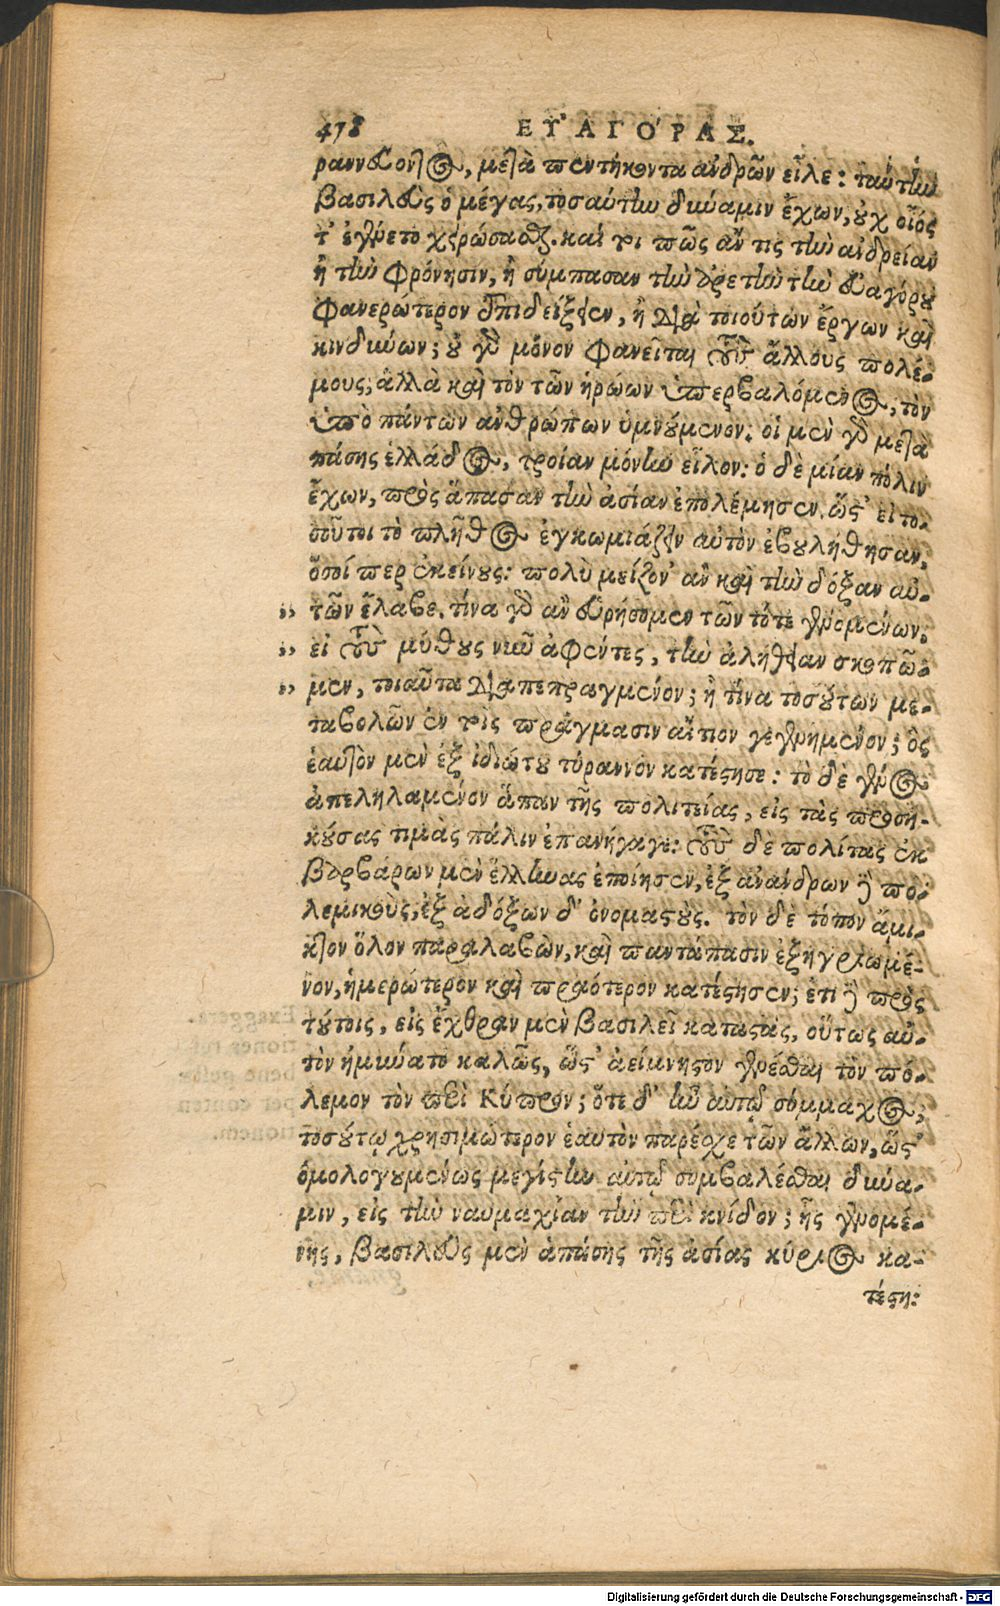 478 ΕΥ᾿ΑΓΟ΄ΡΑΣ.
ραννεύοντος, μετὰ πεντήκοντα ἀνδρῶν εἷλε: ταύτην
βασιλεὺς ὁ μέγας, τοσαύτην δύναμιν ἔχων, οὐχ οἷός
τ' ἐγένετο χειρώσασθαι. καί τοι πῶς ἄν τις τὴν ἀνδρείαν
ἢ τὴν φρόνησιν, ἢ σύμπασαν τὴν ἀρετὴν τὴν Εὐαγόρου
φανερώτερον ἐπιδείξειεν, ἢ διὰ τοιούτων ἔργων καὶ
κινδύνων; οὐ γὰρ μόνον φανεῖται τοὺς ἄλλους πολέ-
μους, ἀλλὰ καὶ τὸν τῶν ἡρώων ὑπερβαλόμενος, τὸν
ὑπὸ πάντων ἀνθρώπων ὑμνούμενον. οἱ μὲν γὰρ μετὰ
πάσης ἑλλάδος, τροίαν μόνην εἷλον: ὁ δὲ μίαν πόλιν
ἔχων, πρὸς ἅπασαν τὴν ἀσίαν ἐπολέμησεν. ὥστ' εἰ το-
σοῦτοι τὸ πλῆθος ἐγκωμιάζειν αὐτὸν ἐβουλήθησαν,
ὅσοί περ ἐκείνους: πολὺ μείζον' ἂν καὶ τὴν δόξαν αὐ-
„ τῶν ἔλαβε. τίνα γὰρ ἂν εὑρήσομεν τῶν τότε γενομένων,
„ εἰ τοὺς μύθους νῦν ἀφέντες, τὴν ἀλήθειαν σκοπῶ-
„ μεν, τοιαῦτα διαπεπραγμένον; ἢ τίνα τοσούτων με-
ταβολῶν ἐν τοῖς πράγμασιν αἴτιον γεγενημένον; ὃς
ἑαυτὸν μὲν ἐξ ἰδιώτου τύραννον κατέστησε: τὸ δὲ γένος
ἀπεληλαμένον ἅπαν τῆς πολιτείας, εἰς τὰς προση-
κούσας τιμὰς πάλιν ἐπανήγαγε: τοὺς δὲ πολίτας ἐκ
βαρβάρων μὲν ἕλληνας ἐποίησεν, ἐξ ἀνάνδρων δὲ πο-
λεμικοὺς, ἐξ ἀδόξων δ' ὀνομαστούς. τὸν δὲ τόπον ἄμι-
κτον ὅλον παραλαβὼν, καὶ παντάπασιν ἐξηγριωμέ-
νον, ἡμερώτερον καὶ πραότερον κατέστησεν; ἔτι δὲ πρὸς
τούτοις, εἰς ἔχθραν μὲν βασιλεῖ καταστὰς, οὕτως αὐ-
τὸν ἠμύνατο καλῶς, ὥστ' ἀείμνηστον γενέσθαι τὸν πό-
λεμον τὸν περὶ Κύπρον; ὅτε δ' ἦν αὐτῷ σύμμαχος,
τοσούτῳ χρησιμώτερον ἑαυτὸν παρέσχε τῶν ἄλλων, ὥστ'
ὁμολογουμένως μεγίστην αὐτῷ συμβαλέσθαι δύνα-
μιν, εἰς τὴν ναυμαχίαν τὴν περὶ κνίδον; ἧς γενομέ-
νης, βασιλεὺς μὲν ἁπάσης τῆς ἀσίας κύριος κα-
τέστη:
Digitalisierung gefördert durch die Deutsche Forschungsgemeinschaft - DFG